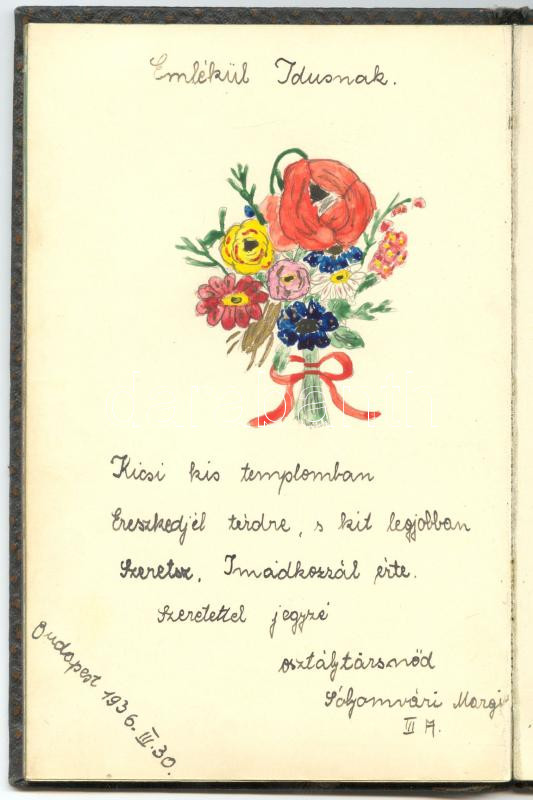 Emlékül Idusnak.
Kicsi kis templomban
Ereszkedjél térdre, s kit legjobban
Szeretsz, Imádkozzál érte.
Szeretettel jegyzé
osztálytársnőd
Sólyomvári Margi
III A.
Budapest 1936. III. 30.